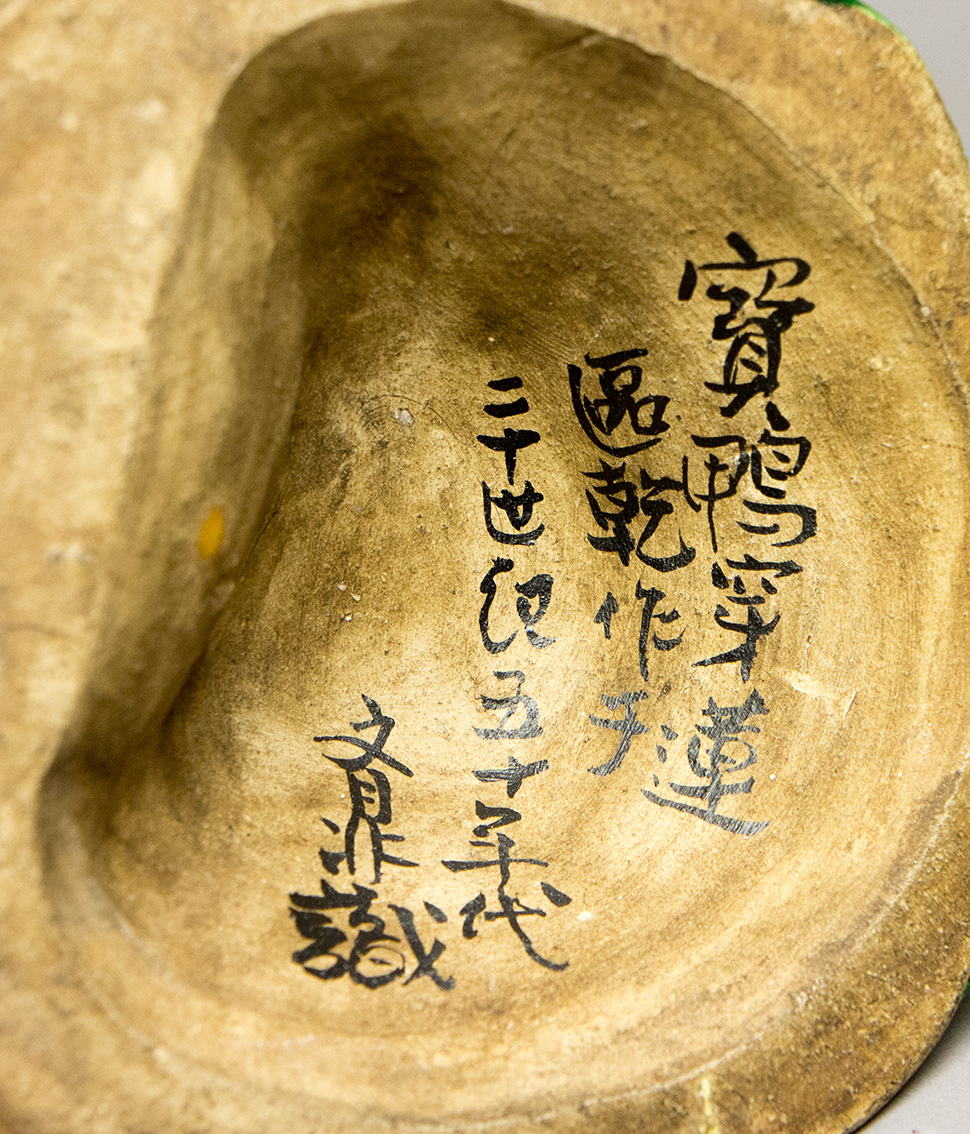 寶鴨穿蓮
區乾作手
二十世紀五十年代
文鼎識